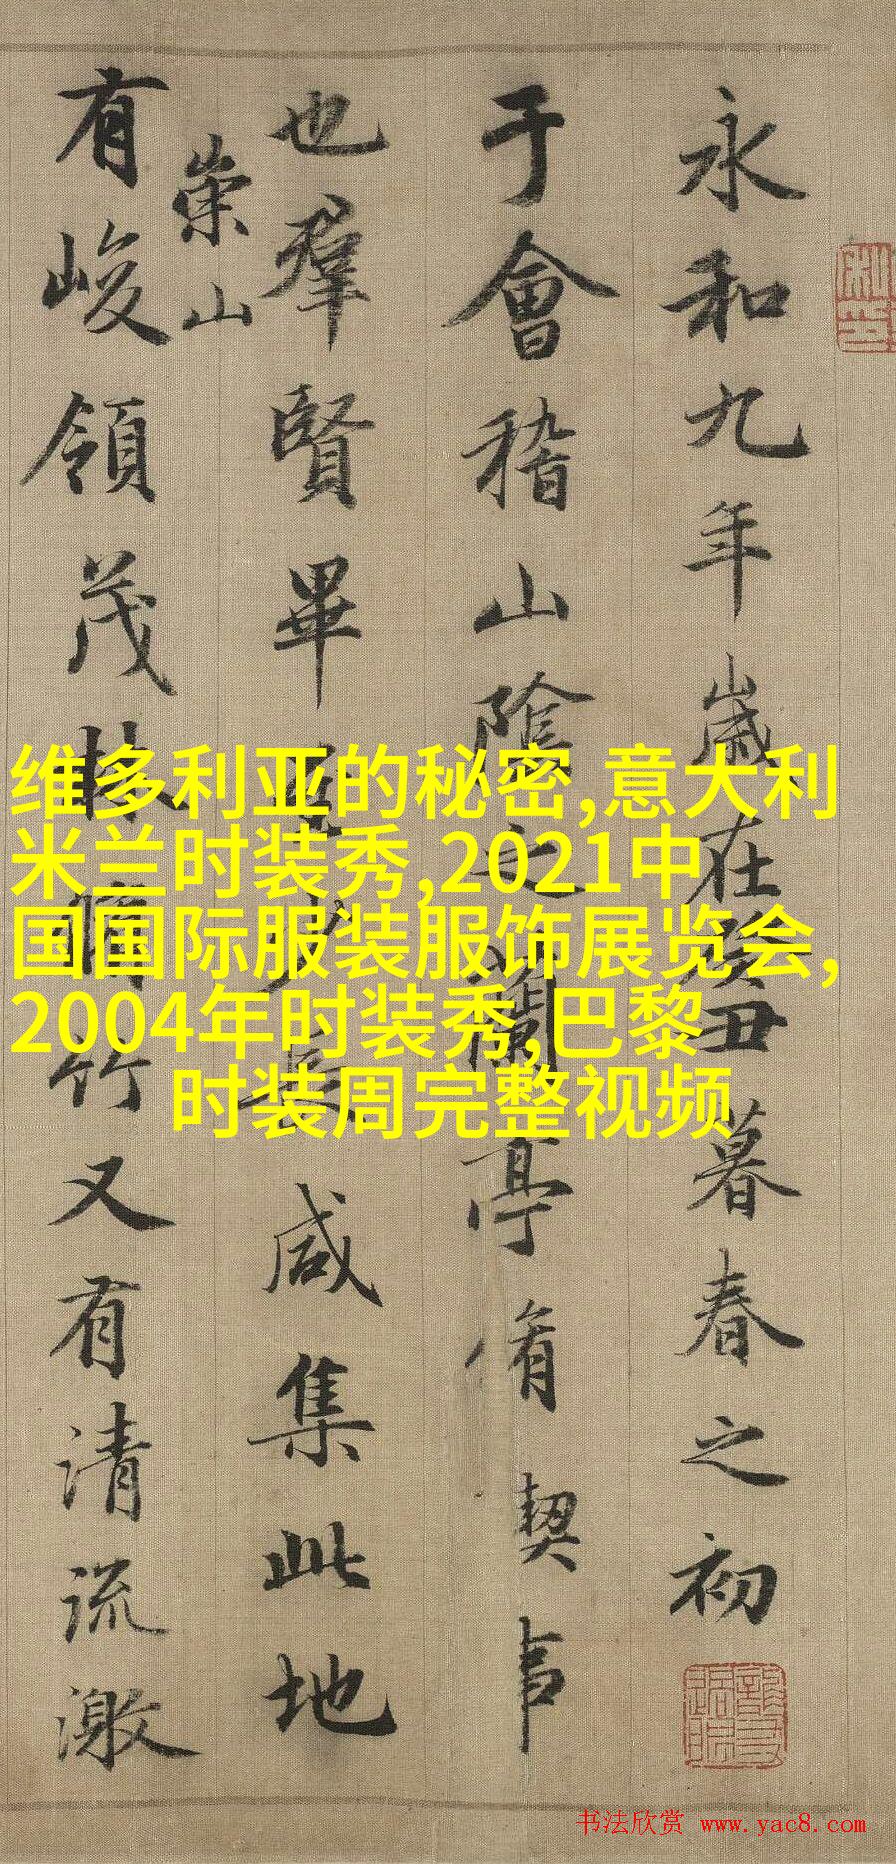 永和九年歲在癸丑暮春之初
于會稽山陰之蘭亭脩契事
也羣賢畢至少長咸集此地
崇山
有峻領茂林脩竹又有清流激
维多利亚的秘密,意大利
米兰时装秀,2021中
国国际服装服饰展览会,
2004年时装秀,巴黎
时装周完整视频
书法欣赏 www.yac8.com